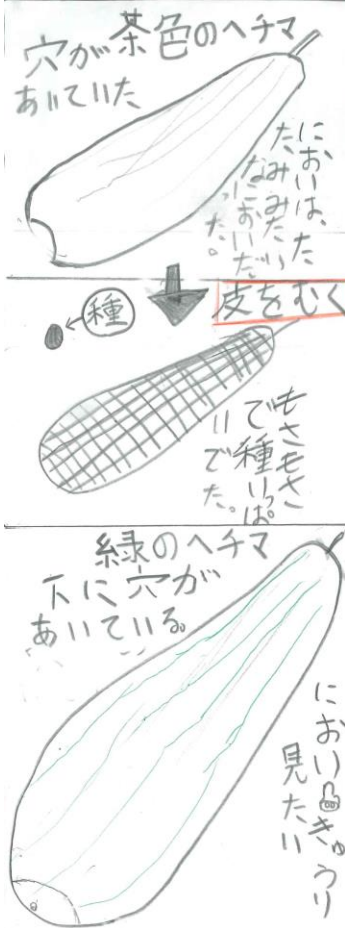 茶色のヘチマ
穴が
あいていた
においは、た
たみみたい
なにおいだっ
た。
皮をむく
種
もさもさ
で種いっぱ
いでた。
緑のヘチマ
下に穴が
あいている。
におい
きゅうり
見たい